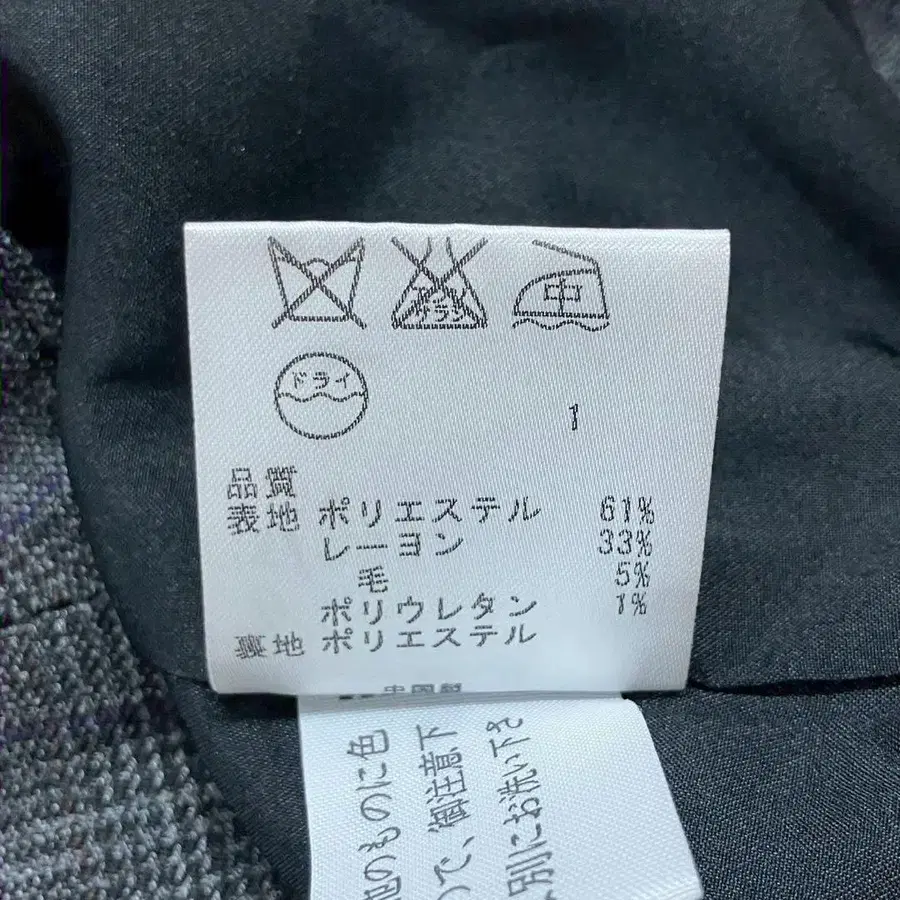 エンソ
サラシ
中
ドライ
1
品質
表地 ポリエステル 61%
レーヨン 33%
毛 5%
ポリウレタン 1%
裏地 ポリエステル
中国製
他のものに色
ので、御注意下
別にお洗い下さ